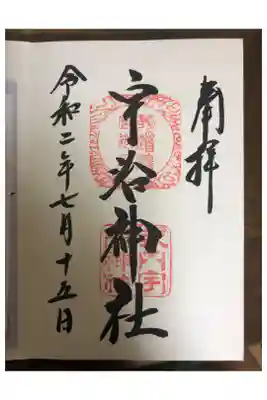 奉拝
宇谷神社
令和二年七月十五日